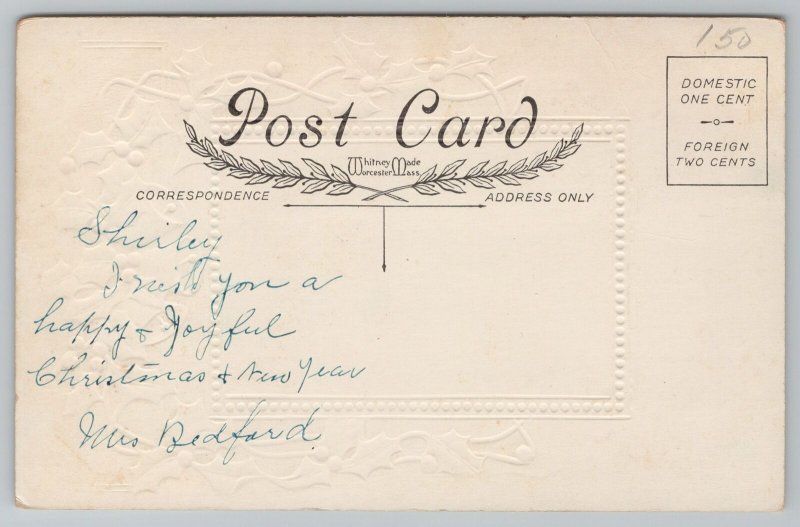 150
Post Card
DOMESTIC
ONE CENT
FOREIGN
TWO CENTS
Whitney Made
Worcester Mass.
CORRESPONDENCE
ADDRESS ONLY
Shirley
I wish you a
happy & Joyful
Christmas & New Year
Mrs Bedford